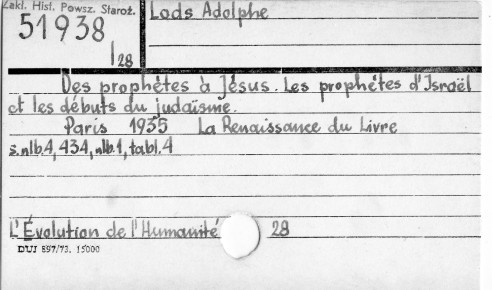 Zakl. Hist. Powsz. Staroż.
51938
/28
Lods Adolphe
Des prophètes à Jésus. Les prophètes d'Israël
et les débuts du judaïsme.
Paris 1935 La Renaissance du Livre
s.nlb.4, 434, nlb.1, tabl.4
L'Évolution de l'Humanité 28
DUJ 897/73. 15000